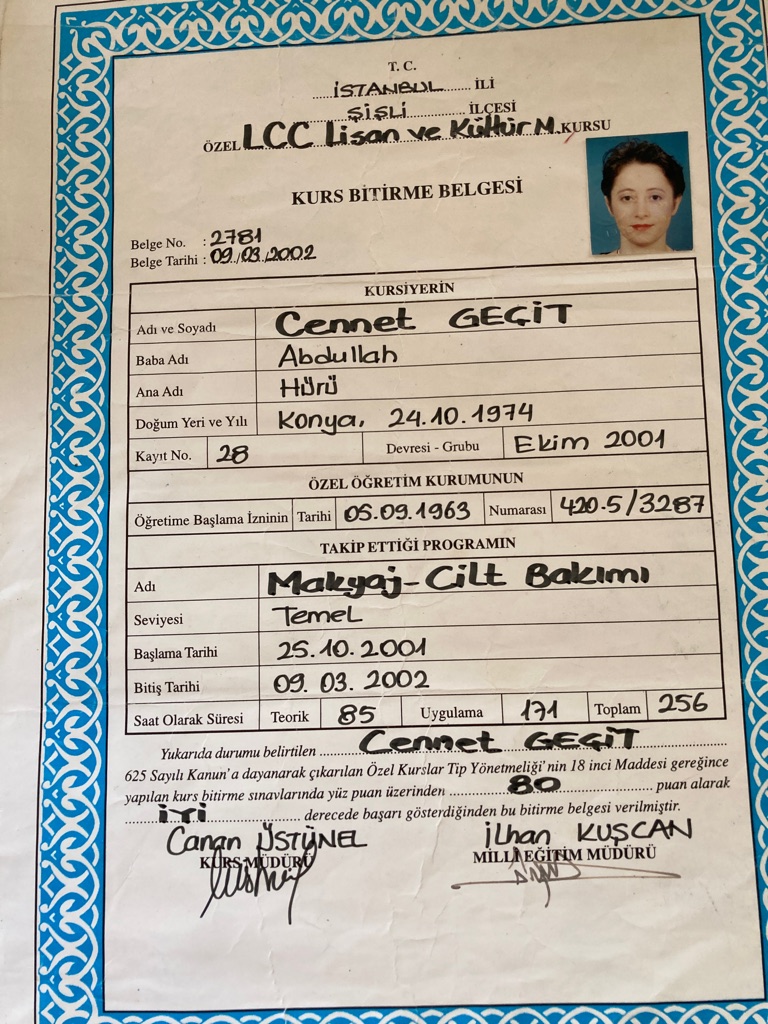 T. C.
İSTANBUL İLİ
ŞİŞLİ İLÇESİ
ÖZEL LCC Lisan ve Kültür M. KURSU
KURS BİTİRME BELGESİ
Belge No. : 2781
Belge Tarihi : 09/03/2002
KURSİYERİN
Adı ve Soyadı Cennet GEÇİT
Baba Adı Abdullah
Ana Adı Hürü
Doğum Yeri ve Yılı Konya, 24.10.1974
Kayıt No. 28 Devresi - Grubu Ekim 2001
ÖZEL ÖĞRETİM KURUMUNUN
Öğretime Başlama İzninin Tarihi 05.09.1963 Numarası 420.5/3287
TAKİP ETTİĞİ PROGRAMIN
Adı Makyaj-Cilt Bakımı
Seviyesi Temel
Başlama Tarihi 25.10.2001
Bitiş Tarihi 09.03.2002
Saat Olarak Süresi Teorik 85 Uygulama 171 Toplam 256
Yukarıda durumu belirtilen Cennet GEÇİT
625 Sayılı Kanun'a dayanarak çıkarılan Özel Kurslar Tip Yönetmeliği'nin 18 inci Maddesi gereğince
yapılan kurs bitirme sınavlarında yüz puan üzerinden 80 puan alarak
İYİ derecede başarı gösterdiğinden bu bitirme belgesi verilmiştir.
Canan ÜSTÜNEL İlhan KUŞCAN
KURS MÜDÜRÜ MİLLİ EĞİTİM MÜDÜRÜ